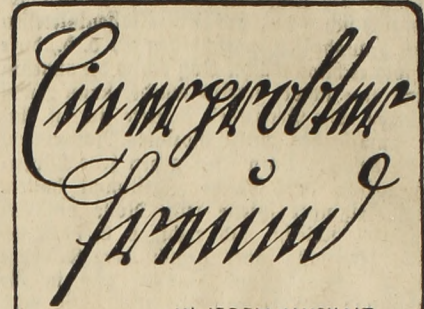 Ein erprobter
Freund